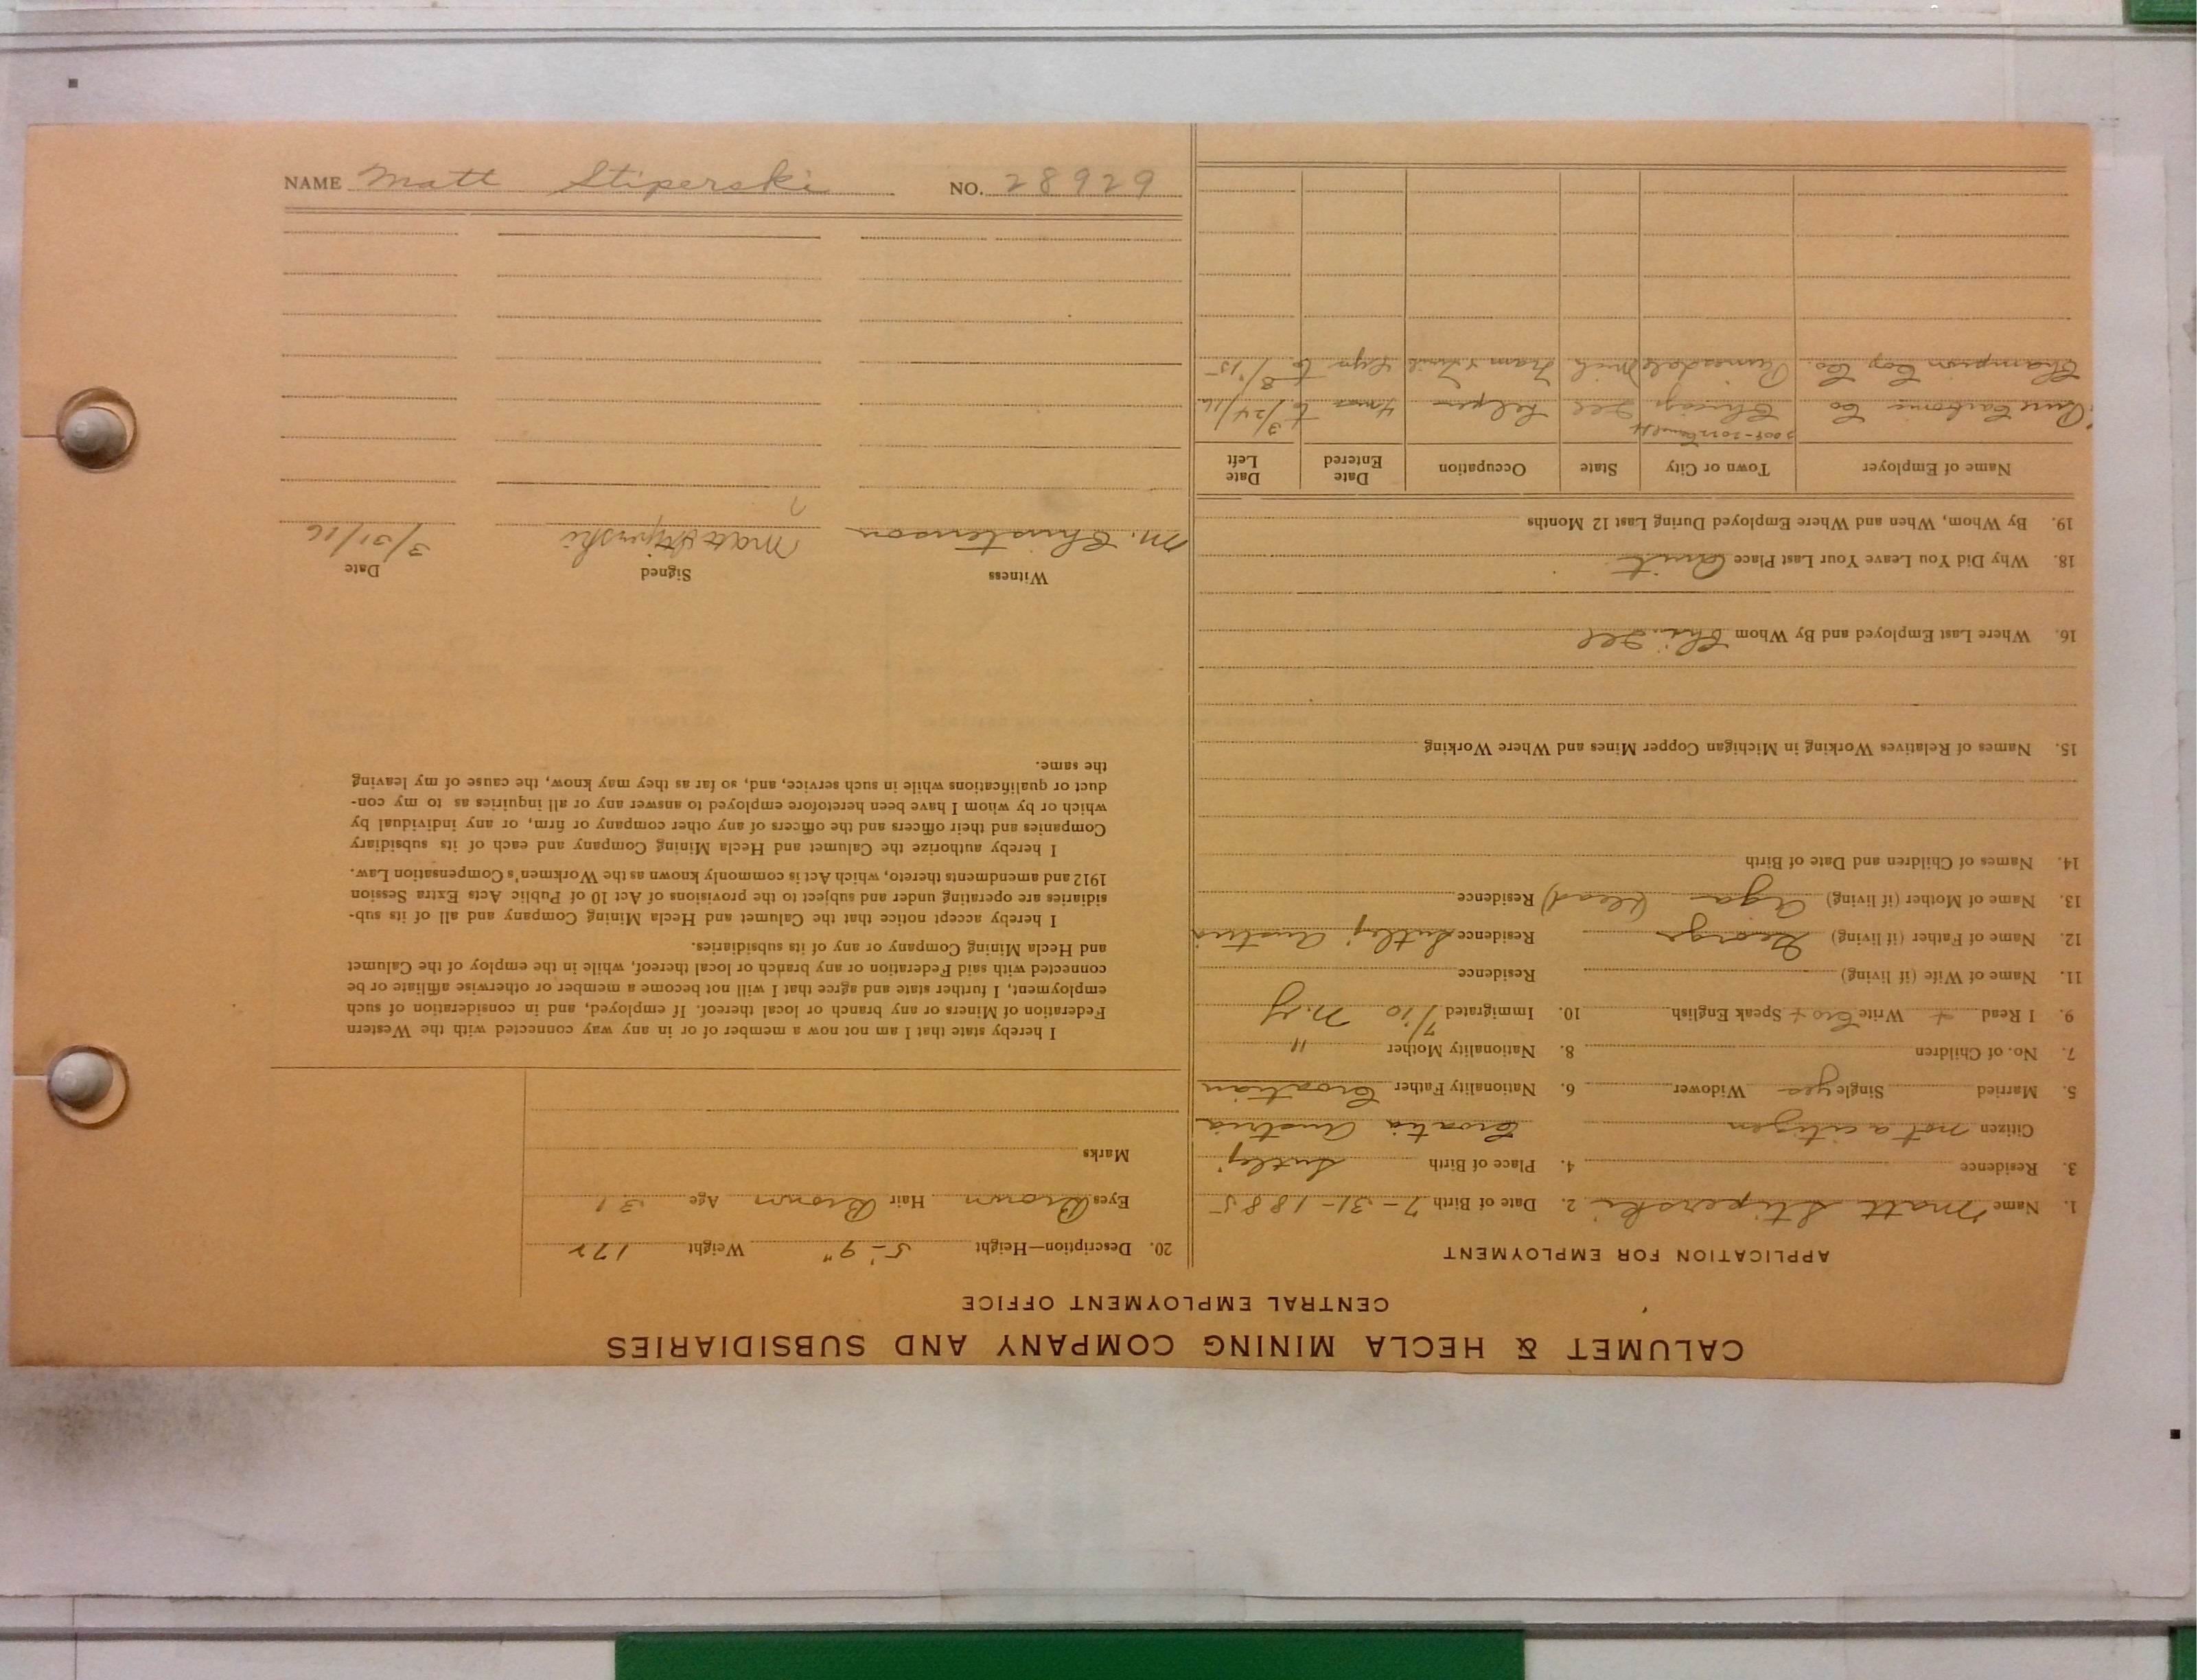 NAME Matt Stiperski NO. 28929
CALUMET & HECLA MINING COMPANY AND SUBSIDIARIES
CENTRAL EMPLOYMENT OFFICE
APPLICATION FOR EMPLOYMENT
1. Name Matt Stiperski 2. Date of Birth 7-31-1885
3. Residence 4. Place of Birth
Citizen not a citizen Croatia Austria
5. Married Single yes Widower 6. Nationality Father Croatian
7. No. of Children 8. Nationality Mother "
9. I Read + Write Cro + Speak English 10. Immigrated 7/10 N.Y
11. Name of Wife (if living) Residence
12. Name of Father (if living) George Residence Austria
13. Name of Mother (if living) (dead) Residence
14. Names of Children and Date of Birth
15. Names of Relatives Working in Michigan Copper Mines and Where Working
16. Where Last Employed and By Whom Chi. Ill
18. Why Did You Leave Your Last Place Quit
19. By Whom, When and Where Employed During Last 12 Months
Name of Employer Town or City State Occupation Date Entered Date Left
Pure Carbonic Co Chicago Ill helper 4 mos to 3/24/16
Champion Cop Co. Painesdale Mich Tram & to 8/15
20. Description—Height 5'-9" Weight 172
Eyes Brown Hair Brown Age 31
Marks
I hereby state that I am not now a member of or in any way connected with the Western
Federation of Miners or any branch or local thereof. If employed, and in consideration of such
employment, I further state and agree that I will not become a member or otherwise affiliate or be
connected with said Federation or any branch or local thereof, while in the employ of the Calumet
and Hecla Mining Company or any of its subsidiaries.
I hereby accept notice that the Calumet and Hecla Mining Company and all of its sub-
sidiaries are operating under and subject to the provisions of Act 10 of Public Acts Extra Session
1912 and amendments thereto, which Act is commonly known as the Workmen's Compensation Law.
I hereby authorize the Calumet and Hecla Mining Company and each of its subsidiary
Companies and their officers and the officers of any other company or firm, or any individual by
which or by whom I have been heretofore employed to answer any or all inquiries as to my con-
duct or qualifications while in such service, and, so far as they may know, the cause of my leaving
the same.
Witness Signed Date
M. Christenson Matt Stiperski 3/31/16